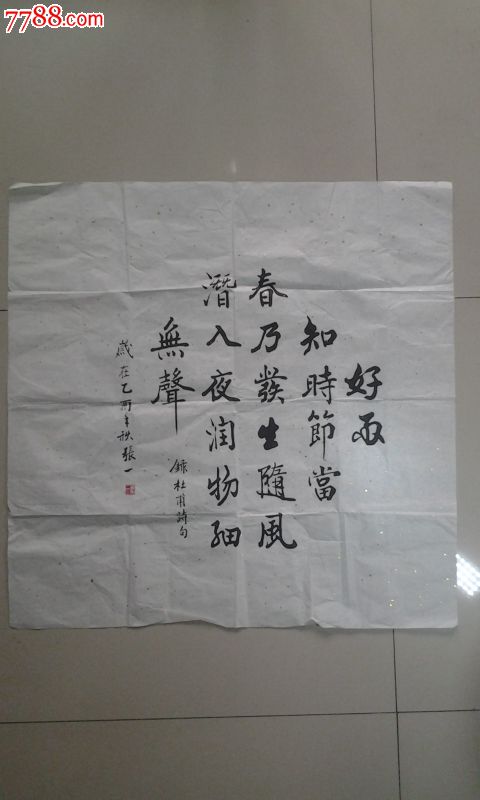 7788.com
好雨
知時節當
春乃發生隨風
潛入夜潤物細
無聲
錄杜甫詩句
歲在乙酉年秋張一